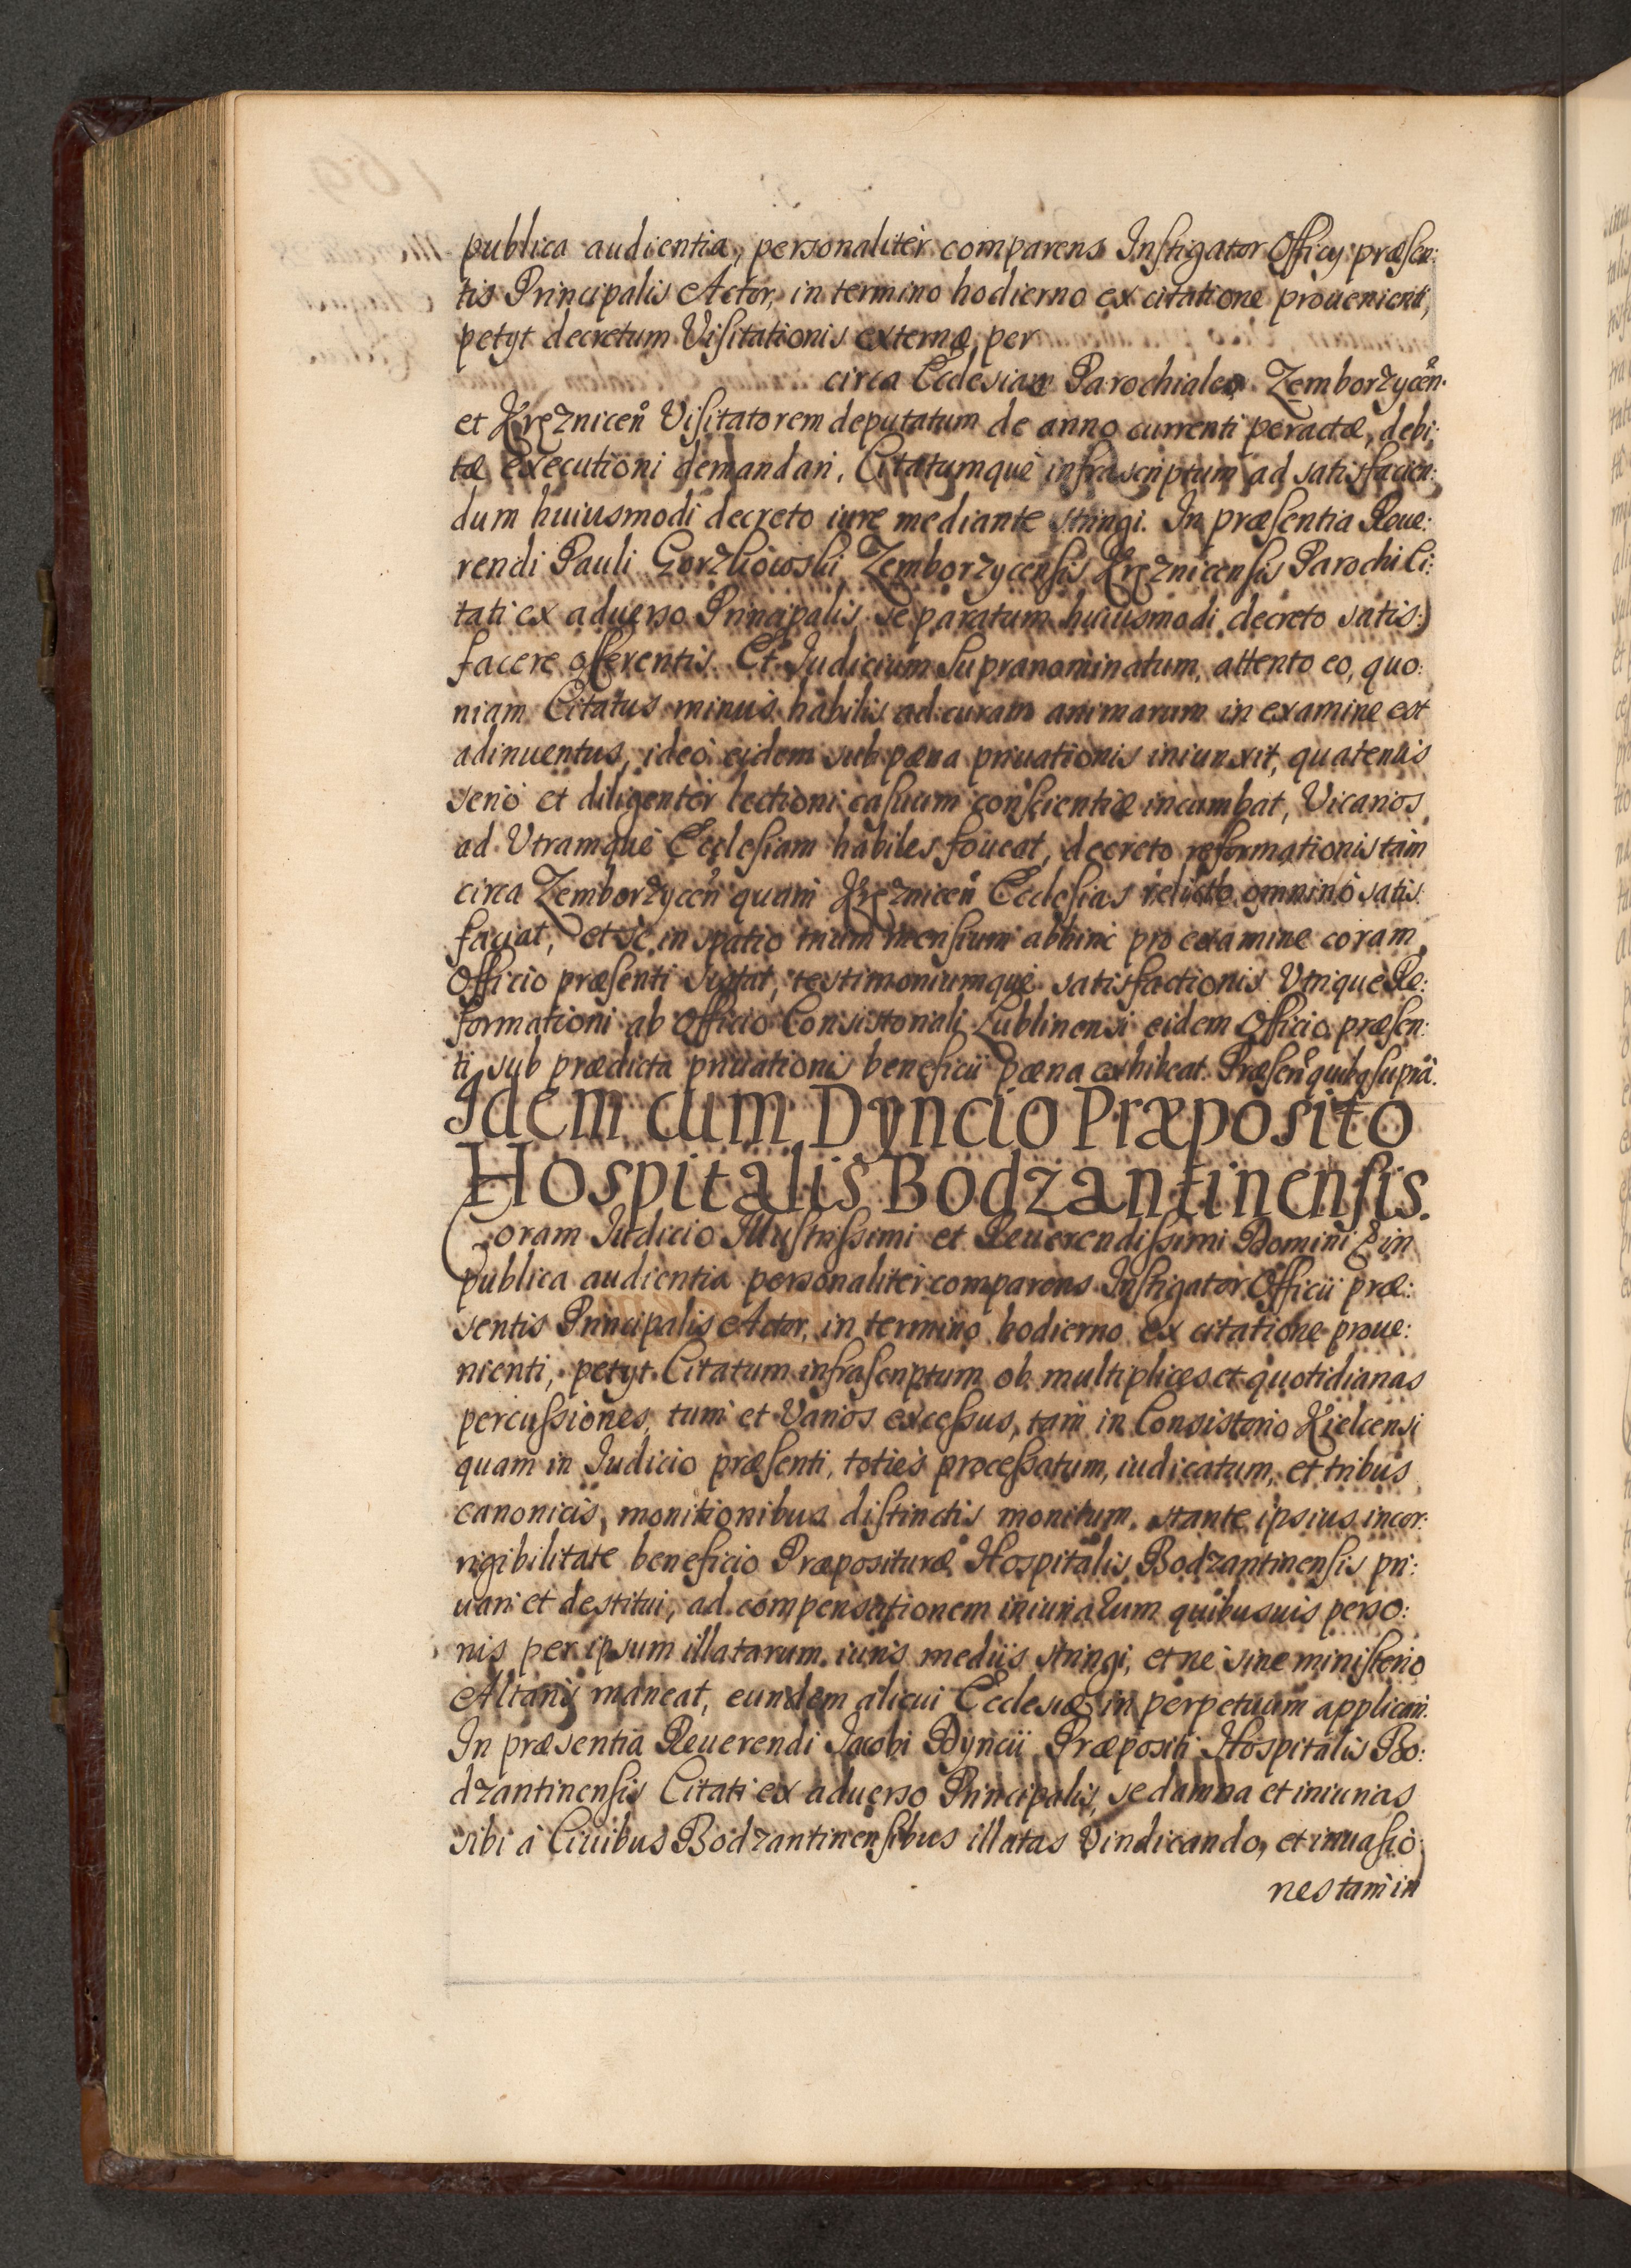 publica audientia, personalitèr comparens Instigator Officij præsen:
tis Principalis Actor, in termino hodierno ex citatione prouenienti,
petyt decretum Visitationis externæ, per
circa Ecclesiam Parochialem Zemborzyceñ.
et Kręzniceñ Visitatorem deputatum de anno currenti peractæ, debi:
tæ executioni demandari, Citatumquè infrascriptum ad satisfacien:
dum huiusmodi decreto iure mediante stringi. In præsentia Reue:
rendi Pauli Gorzkowski Zemborzycensis Kręznicensis Parochi Ci:
tati ex aduerso Principalis se paratum huiusmodi decreto satis:
facere offerentis. Et Iudicium supranominatum, attento eo, quo:
niam Citatus minus habilis ad curam animarum in examine est
adinuentus, ideò eidem sub pæna priuationis iniunxit, quatenùs
seriò et diligentèr lectioni casuum conscientiæ incumbat, Vicarios
ad Vtramquè Ecclesiam habiles foueat, decreto reformationis tàm
circa Zemborzyceñ quam Kręzniceñ Ecclesias relicto omninò satis
faciat, et se in spatio trium mensium abhinc pro examine coram
Officio præsenti sistat, testimoniumquè satisfactionis Vtriquè Re:
formationi ab Officio Consistoriali Lublinensi eidem Officio præsen:
ti sub prædicta priuationis beneficii pæna exhibeat. Præsen̄ quibq suprà.
Idem cum Dyncio Præposito
Hospitalis Bodzantinensis.
Coram Iudicio Illustrissimi et Reuerendissimi Domini E in
publica audientia personalitèr comparens Instigator Officii præ:
sentis Principalis Actor, in termino hodierno ex citatione proue:
nienti, petyt Citatum infrascriptum ob multiplices et quotidianas
percussiones, tum et Varios excessus, tam in Consistorio Kielcensi
quam in Iudicio præsenti, totiès processatum, iudicatum, et tribus
canonicis, monitionibus distinctis monitum, stante ipsius incor:
rigibilitate beneficio Præpositurae Hospitalis Bodzantinensis pri:
uari et destitui, ad compensationem iniuriarum quibusuis perso:
nis per ipsum illatarum iuris mediis stringi, et ne sine ministerio
Altaris maneat, eundem alicui Ecclesiæ in perpetuum applicari.
In præsentia Reuerendi Iacobi Dyncii Præpositi Hospitalis Bo:
dzantinensis Citati ex aduerso Principalis, se damna et iniurias
sibi à Ciuibus Bodzantinensibus illatas Vindicando, et inuasio
nes tam in